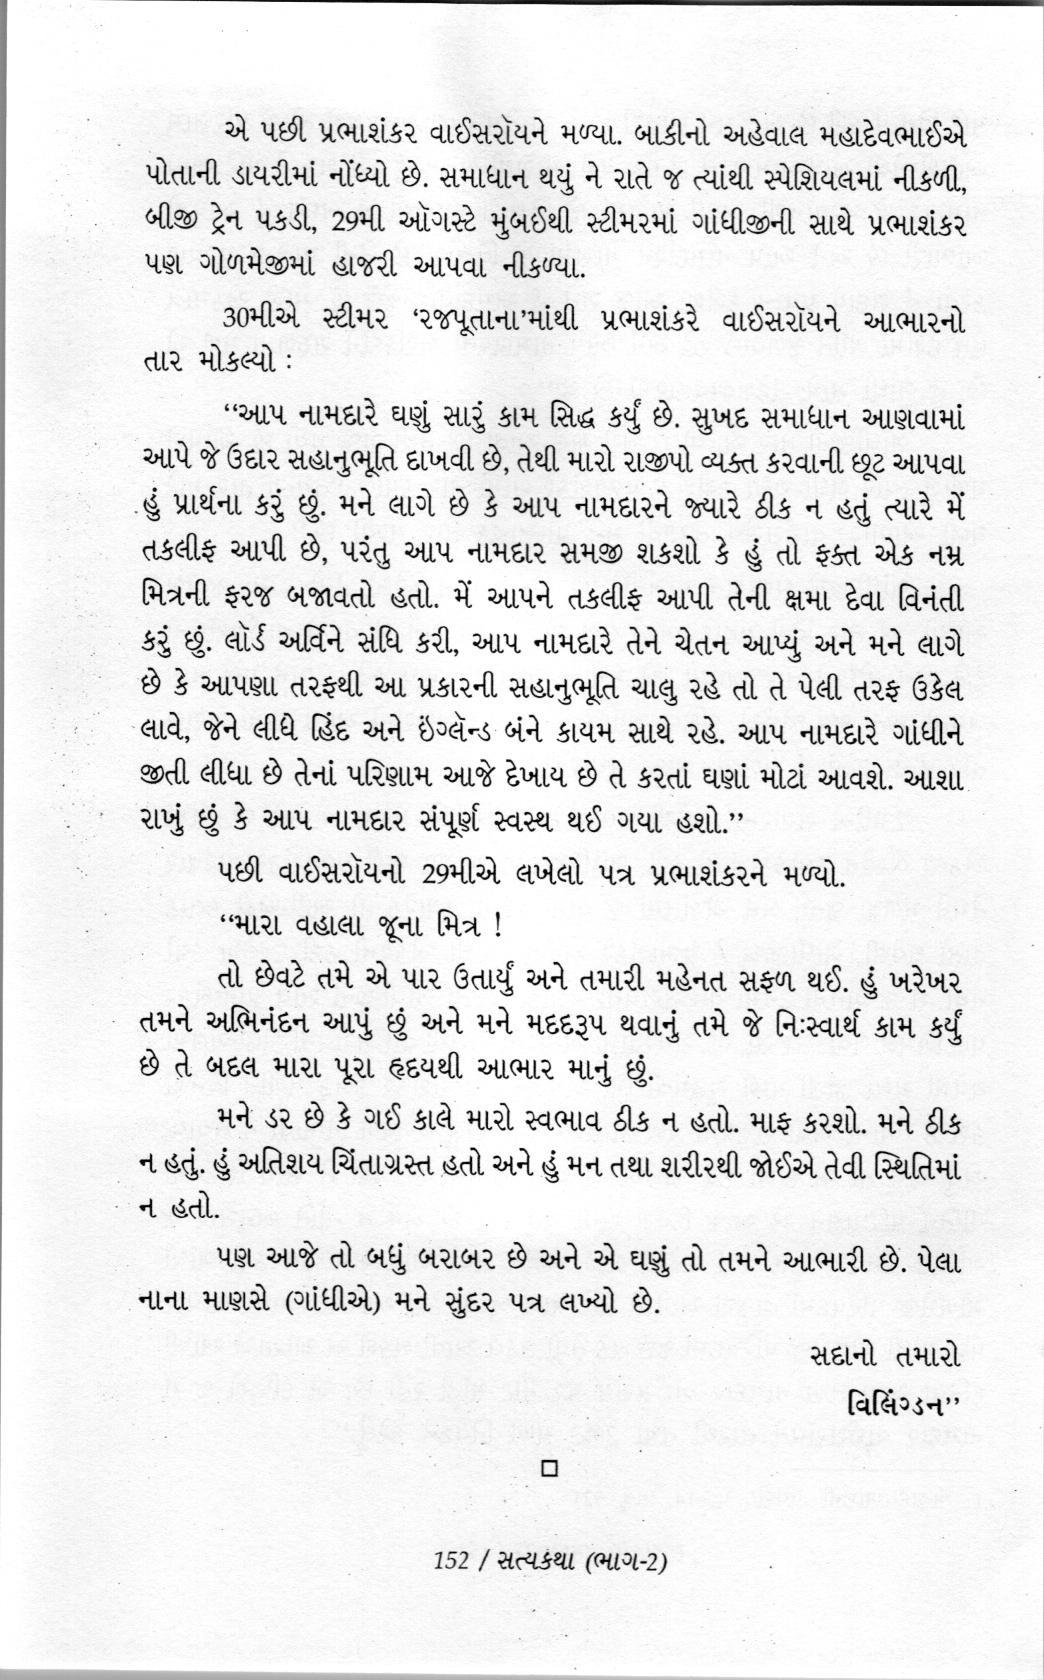 એ પછી પ્રભાશંકર વાઈસરૉયને મળ્યા. બાકીનો અહેવાલ મહાદેવભાઈએ
પોતાની ડાયરીમાં નોંધ્યો છે. સમાધાન થયું ને રાતે જ ત્યાંથી સ્પેશિયલમાં નીકળી,
બીજી ટ્રેન પકડી, 29મી ઑગસ્ટે મુંબઈથી સ્ટીમરમાં ગાંધીજીની સાથે પ્રભાશંકર
પણ ગોળમેજીમાં હાજરી આપવા નીકળ્યા.
30મીએ સ્ટીમર ‘રજપૂતાના’માંથી પ્રભાશંકરે વાઈસરૉયને આભારનો
તાર મોકલ્યો :
‘‘આપ નામદારે ઘણું સારું કામ સિદ્ધ કર્યું છે. સુખદ સમાધાન આણવામાં
આપે જે ઉદાર સહાનુભૂતિ દાખવી છે, તેથી મારો રાજીપો વ્યક્ત કરવાની છૂટ આપવા
હું પ્રાર્થના કરું છું. મને લાગે છે કે આપ નામદારને જ્યારે ઠીક ન હતું ત્યારે મેં
તકલીફ આપી છે, પરંતુ આપ નામદાર સમજી શકશો કે હું તો ફક્ત એક નમ્ર
મિત્રની ફરજ બજાવતો હતો. મેં આપને તકલીફ આપી તેની ક્ષમા દેવા વિનંતી
કરું છું. લૉર્ડ અર્વિને સંધિ કરી, આપ નામદારે તેને ચેતન આપ્યું અને મને લાગે
છે કે આપણા તરફથી આ પ્રકારની સહાનુભૂતિ ચાલુ રહે તો તે પેલી તરફ ઉકેલ
લાવે, જેને લીધે હિંદ અને ઇંગ્લૅન્ડ બંને કાયમ સાથે રહે. આપ નામદારે ગાંધીને
જીતી લીધા છે તેનાં પરિણામ આજે દેખાય છે તે કરતાં ઘણાં મોટાં આવશે. આશા
રાખું છું કે આપ નામદાર સંપૂર્ણ સ્વસ્થ થઈ ગયા હશો.’’
પછી વાઈસરૉયનો 29મીએ લખેલો પત્ર પ્રભાશંકરને મળ્યો.
‘‘મારા વહાલા જૂના મિત્ર !
તો છેવટે તમે એ પાર ઉતાર્યું અને તમારી મહેનત સફળ થઈ. હું ખરેખર
તમને અભિનંદન આપું છું અને મને મદદરૂપ થવાનું તમે જે નિઃસ્વાર્થ કામ કર્યું
છે તે બદલ મારા પૂરા હૃદયથી આભાર માનું છું.
મને ડર છે કે ગઈ કાલે મારો સ્વભાવ ઠીક ન હતો. માફ કરશો. મને ઠીક
ન હતું. હું અતિશય ચિંતાગ્રસ્ત હતો અને હું મન તથા શરીરથી જોઈએ તેવી સ્થિતિમાં
ન હતો.
પણ આજે તો બધું બરાબર છે અને એ ઘણું તો તમને આભારી છે. પેલા
નાના માણસે (ગાંધીએ) મને સુંદર પત્ર લખ્યો છે.
સદાનો તમારો
વિલિંગ્ડન’’
152 / સત્યકથા (ભાગ-2)